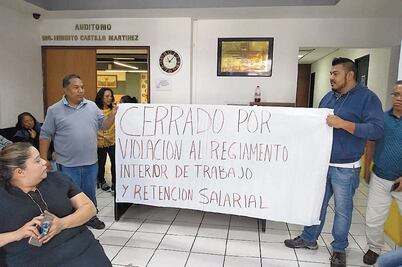 AUDITORIO
ING. HERIBITO CASTILLO MARTINEZ
CERRADO POR
VIOLACION AL REGLAMENTO
INTERIOR DE TRABAJO
Y RETENCION SALARIAL